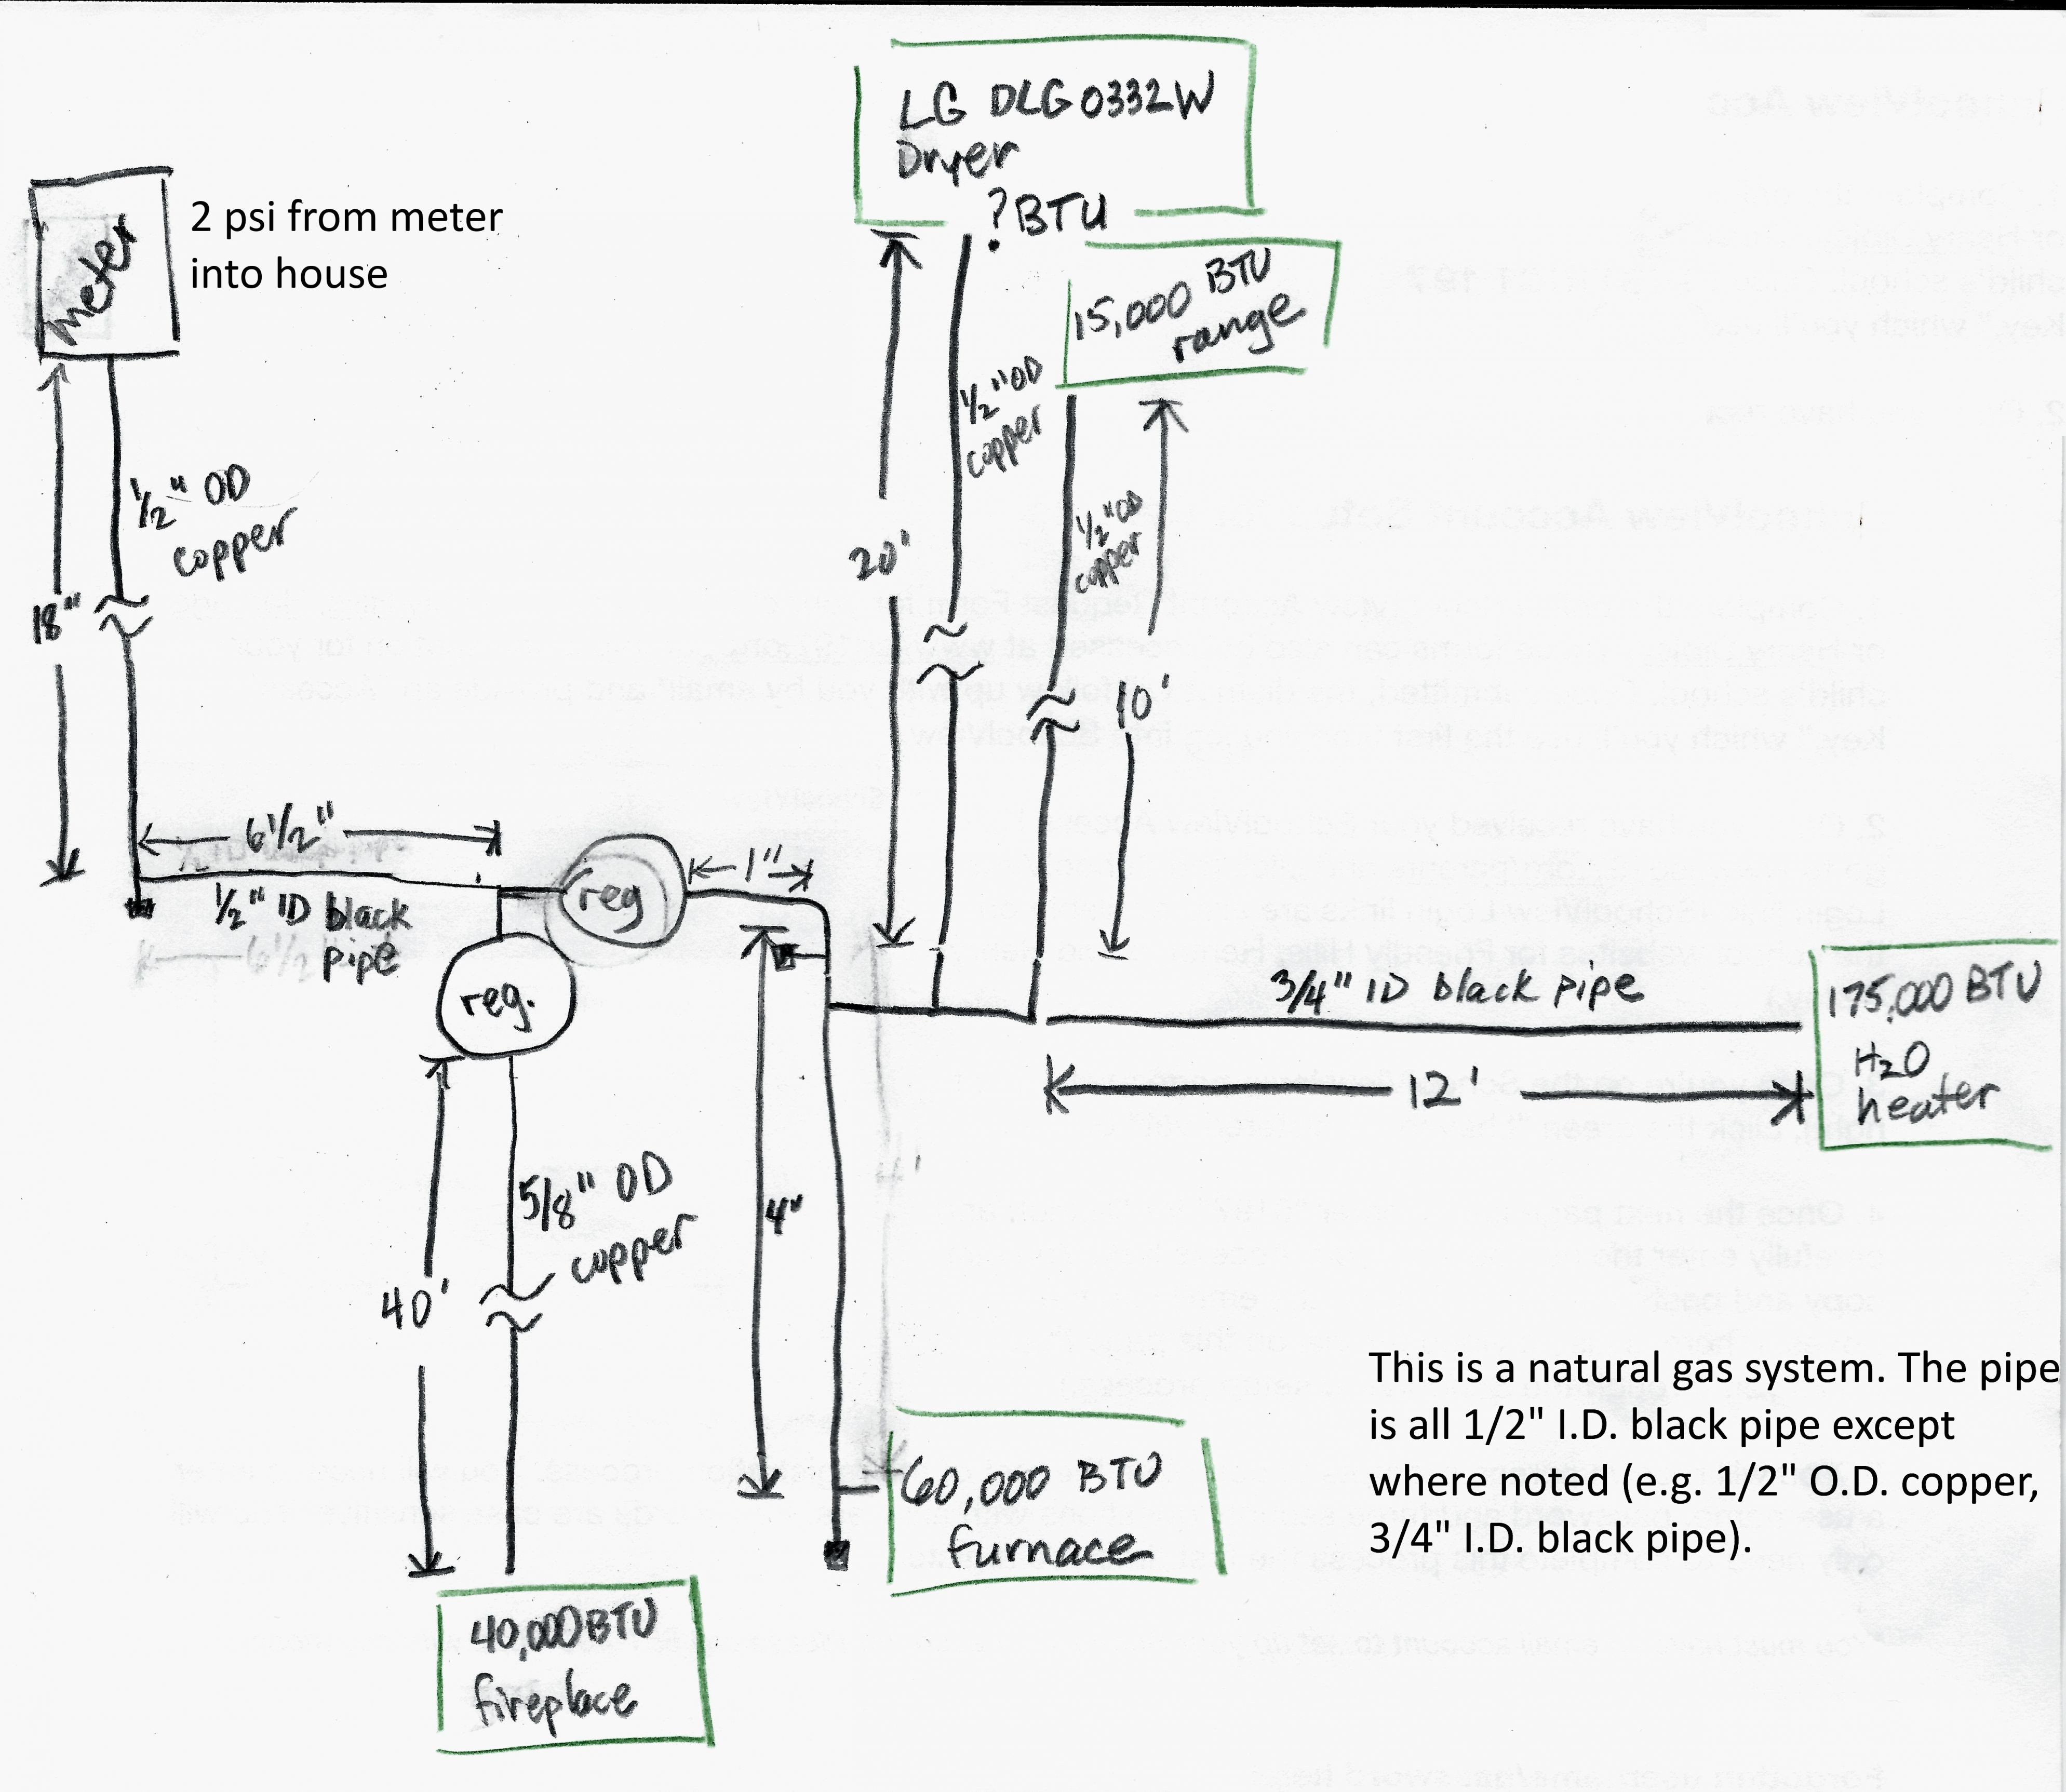 LG DLG0332W
Dryer
? BTU
meter
2 psi from meter
into house
15,000 BTU
range
1/2" OD
copper
1/2" OD
copper
1/2" OD
copper
20'
18"
10'
6 1/2"
1/2" ID black
pipe
reg
1"
reg.
3/4" ID black pipe
12'
175,000 BTU
H2O
heater
5/8" OD
copper
4"
40'
This is a natural gas system. The pipe
is all 1/2" I.D. black pipe except
where noted (e.g. 1/2" O.D. copper,
3/4" I.D. black pipe).
60,000 BTU
furnace
40,000 BTU
fireplace